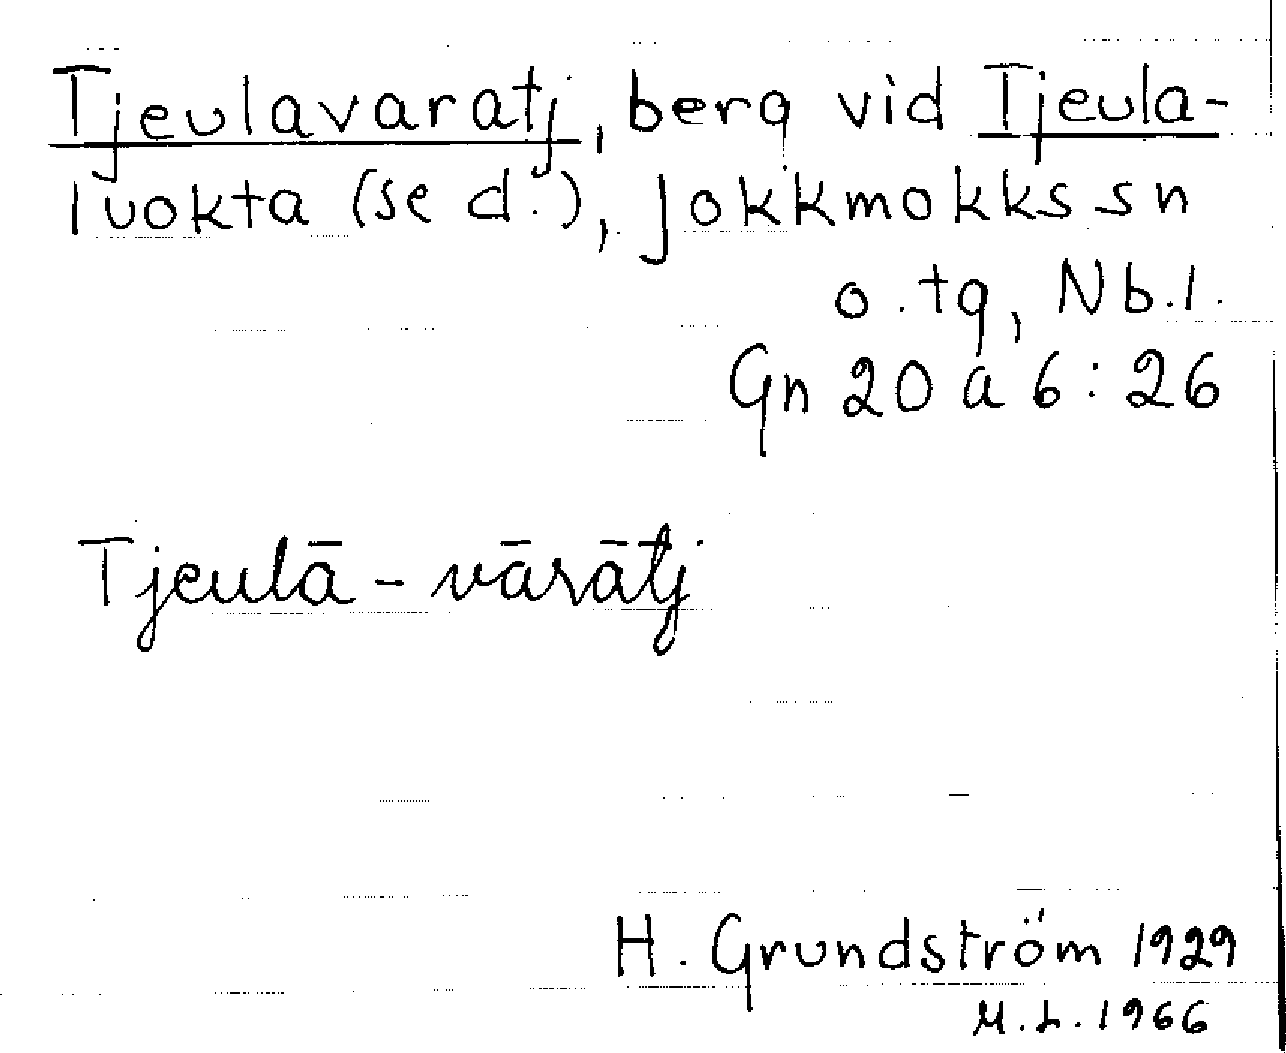 Tjeulavaratj, berg vid Tjeula-
luokta (se d:), Jokkmokks sn
o. tg, Nb. l.
Gn 20 a 6:26
Tjeulā - vārātj
H. Grundström 1929
M.L. 1966